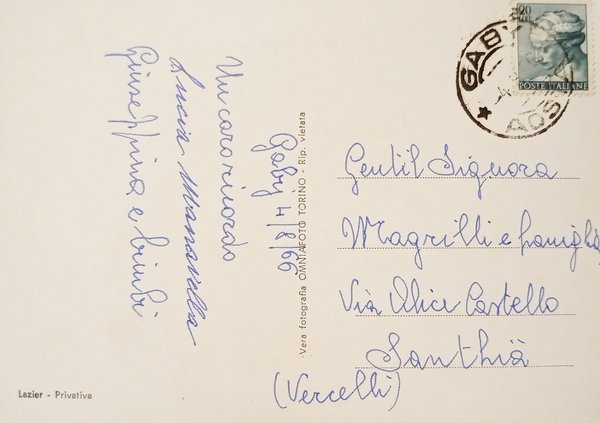 Un caro ricordo
Gaby 4/8/66
Lucia
Giuseppina e bimbi
Vera fotografia OMNIAFOTO TORINO - Rip. vietata
Lazier - Privativa
GABY
AOSTA
20
LIRE
POSTE ITALIANE
Gentil Signora
Magrilli e famiglia
Via Castello
Santhià
(Vercelli)